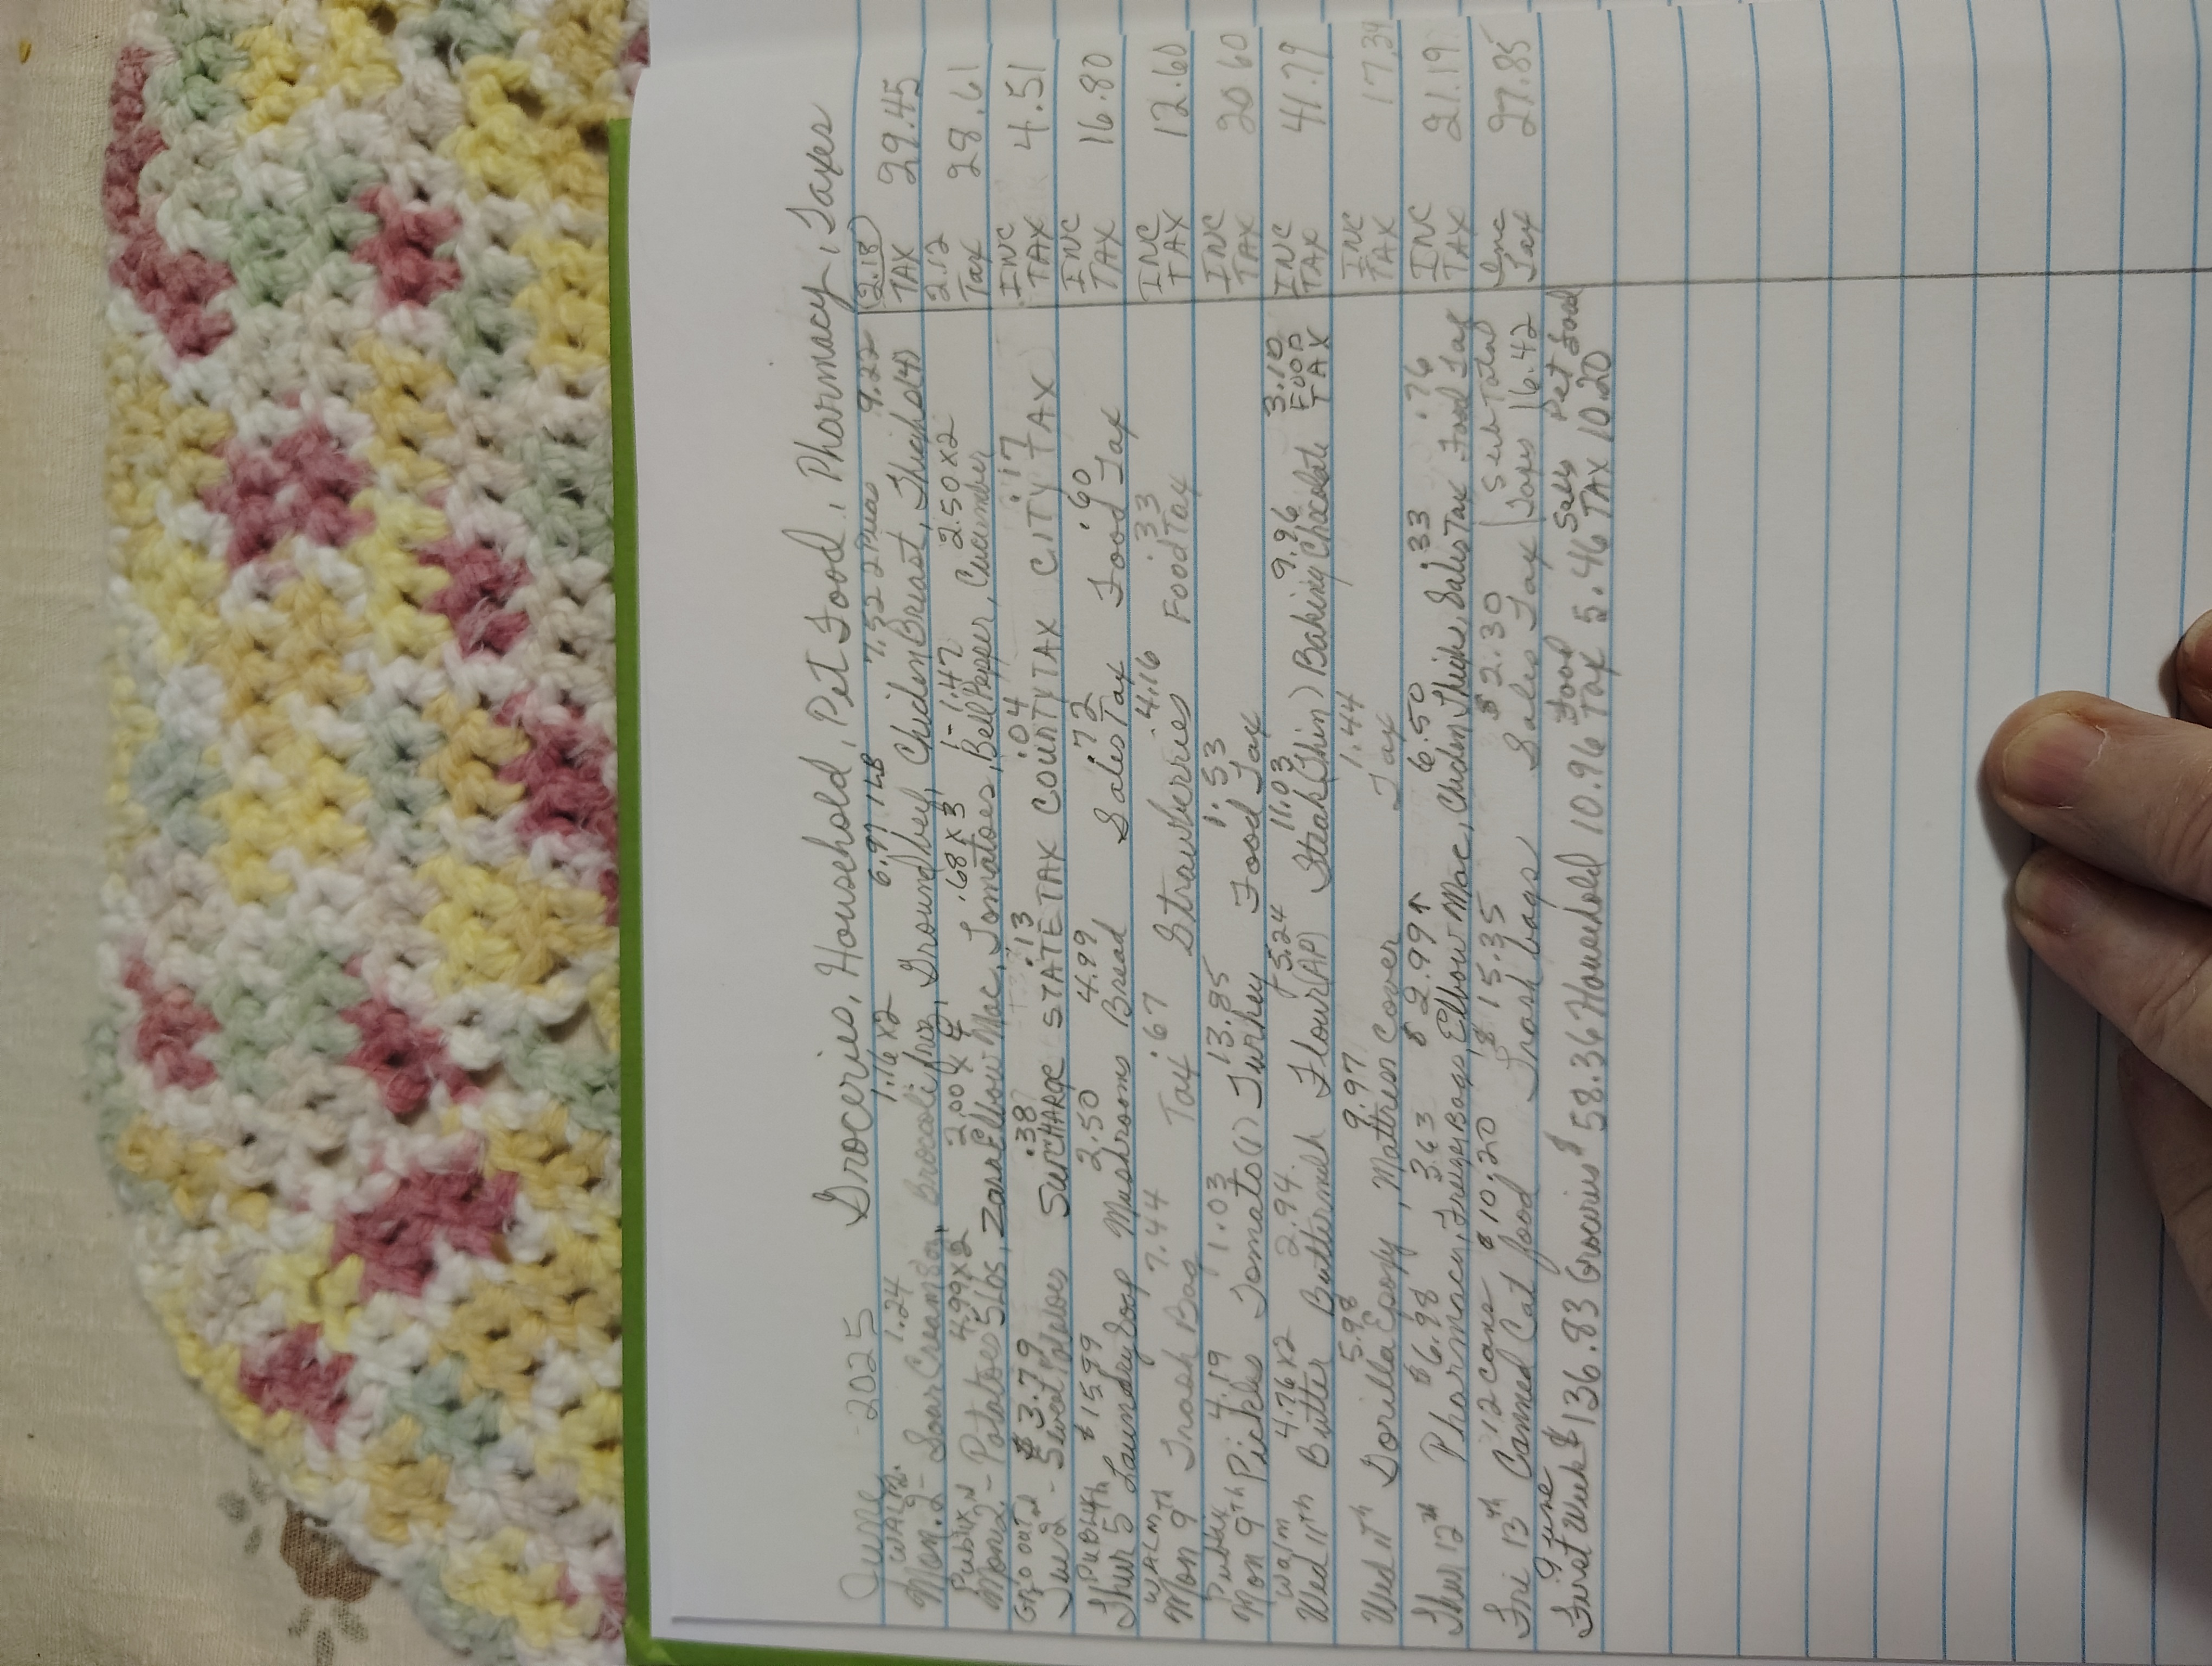 June 2025 Groceries, Household, Pet Food, Pharmacy, Taxes
WALM. 1.24 1.16 x2 6.97 1LB 7.52 2Pkas 9.22 2.18
Mon. 2 - Sour Cream 8oz, Brocoli frez, Ground beef, Chicken Breast, Thighs (4) TAX 29.45
Publix 4.99 x 2 2.00 x .68 x 3 1-1.47 2.50 x 2 2.12
Mon 2 - Potatoes 5 Lbs, Zara Elbow Mac, Tomatoes, Bell Pepper, Cucumber Tax 28.61
Gro out $3.79 .38 .13 .04 .17 INC
Tue 2 - Sweet Potatoes SURCHARGE STATE TAX COUNTY TAX CITY TAX TAX 4.51
PUBLIX $15.99 2.50 4.99 .72 .60 INC
Thur 5th Laundry Soap Mushrooms Bread Sales Tax Food Tax TAX 16.80
WALM 7.44 Tax .67 4.16 .33 INC
Mon 9th Trash Bag Strawberries Food Tax TAX 12.60
Publix 4.19 1.03 13.85 1.53 INC
Mon 9th Pickles Tomato (1) Turkey Food Tax TAX 20.60
Walm 4.76 x2 2.94 5.24 11.03 9.96 3.10 INC
Wed 11th Butter Buttermilk Flour (AP) Steak (Thin) Baking Chocolate FOOD TAX TAX 41.79
5.98 9.97 1.44 INC
Wed 11th Gorilla Epoxy, Mattress Cover Tax TAX 17.39
$6.98 3.63 $2.99 ↑ 6.50 .33 .76 INC
Thur 12th Pharmacy, Freezer Bags, Elbow Mac, Chicken Thighs, Sales Tax Food Tax TAX 21.19
12 cans $10.20 $15.35 $2.30 Sub Total Inc
Fri 13th Canned Cat food Trash bags Sales Tax Tax 27.85
June Food Sales Pet Food
First Week $136.83 Grocries $58.36 Household 10.96 Tax 5.46 TAX 10.20